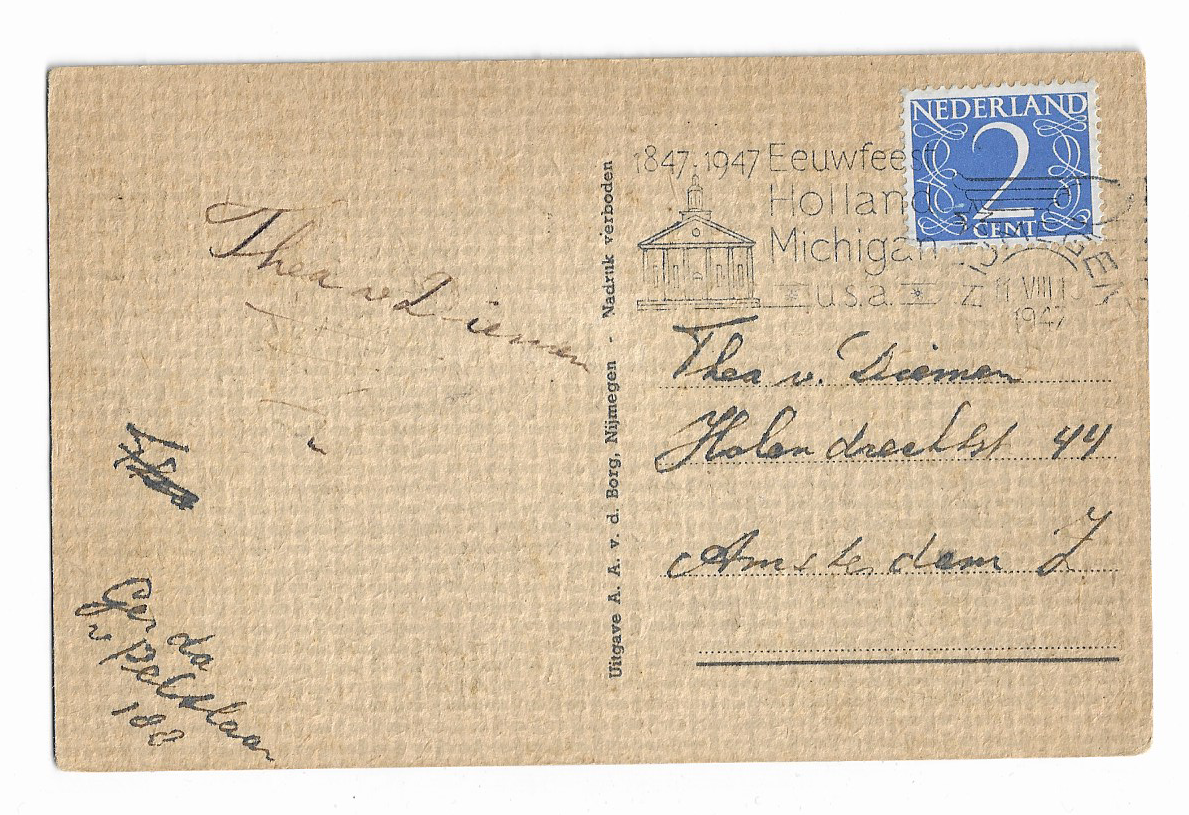 Thea v Diemen
Gerda
Uitgave A. A. v. d. Borg, Nijmegen - Nadruk verboden
1847-1947 Eeuwfeest
Holland
Michigan
u.s.a.
NEDERLAND
2
CENT
11 VIII
1947
Thea v. Diemen
Holendrechtst 44
Amsterdam Z